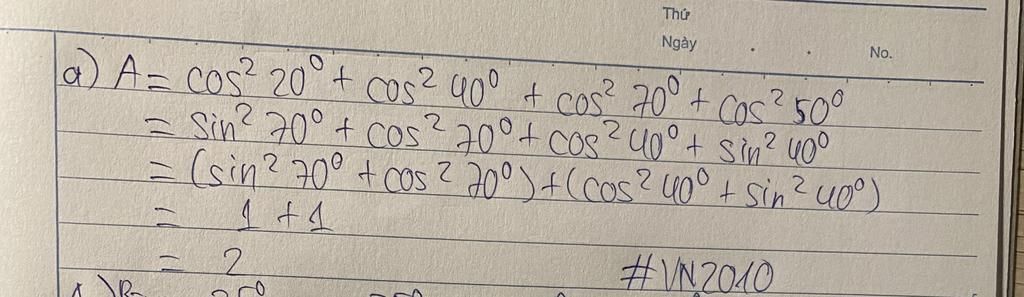 Thứ
Ngày . . No.
a) A = cos² 20⁰ + cos² 40⁰ + cos² 70⁰ + cos² 50⁰
= sin² 70⁰ + cos² 70⁰ + cos² 40⁰ + sin² 40⁰
= (sin² 70⁰ + cos² 70⁰) + (cos² 40⁰ + sin² 40⁰)
= 1 + 1
= 2
#VN2010